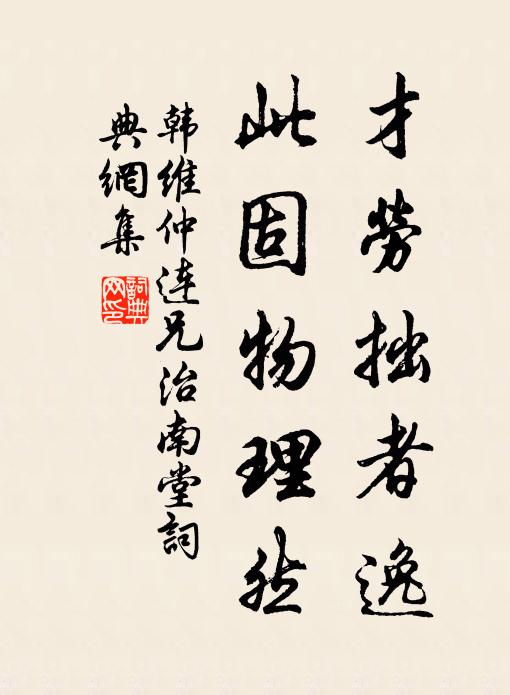 才勞拙者逸
此固物理然
韩維仲連兄治南堂詞
典網集
詞典网印